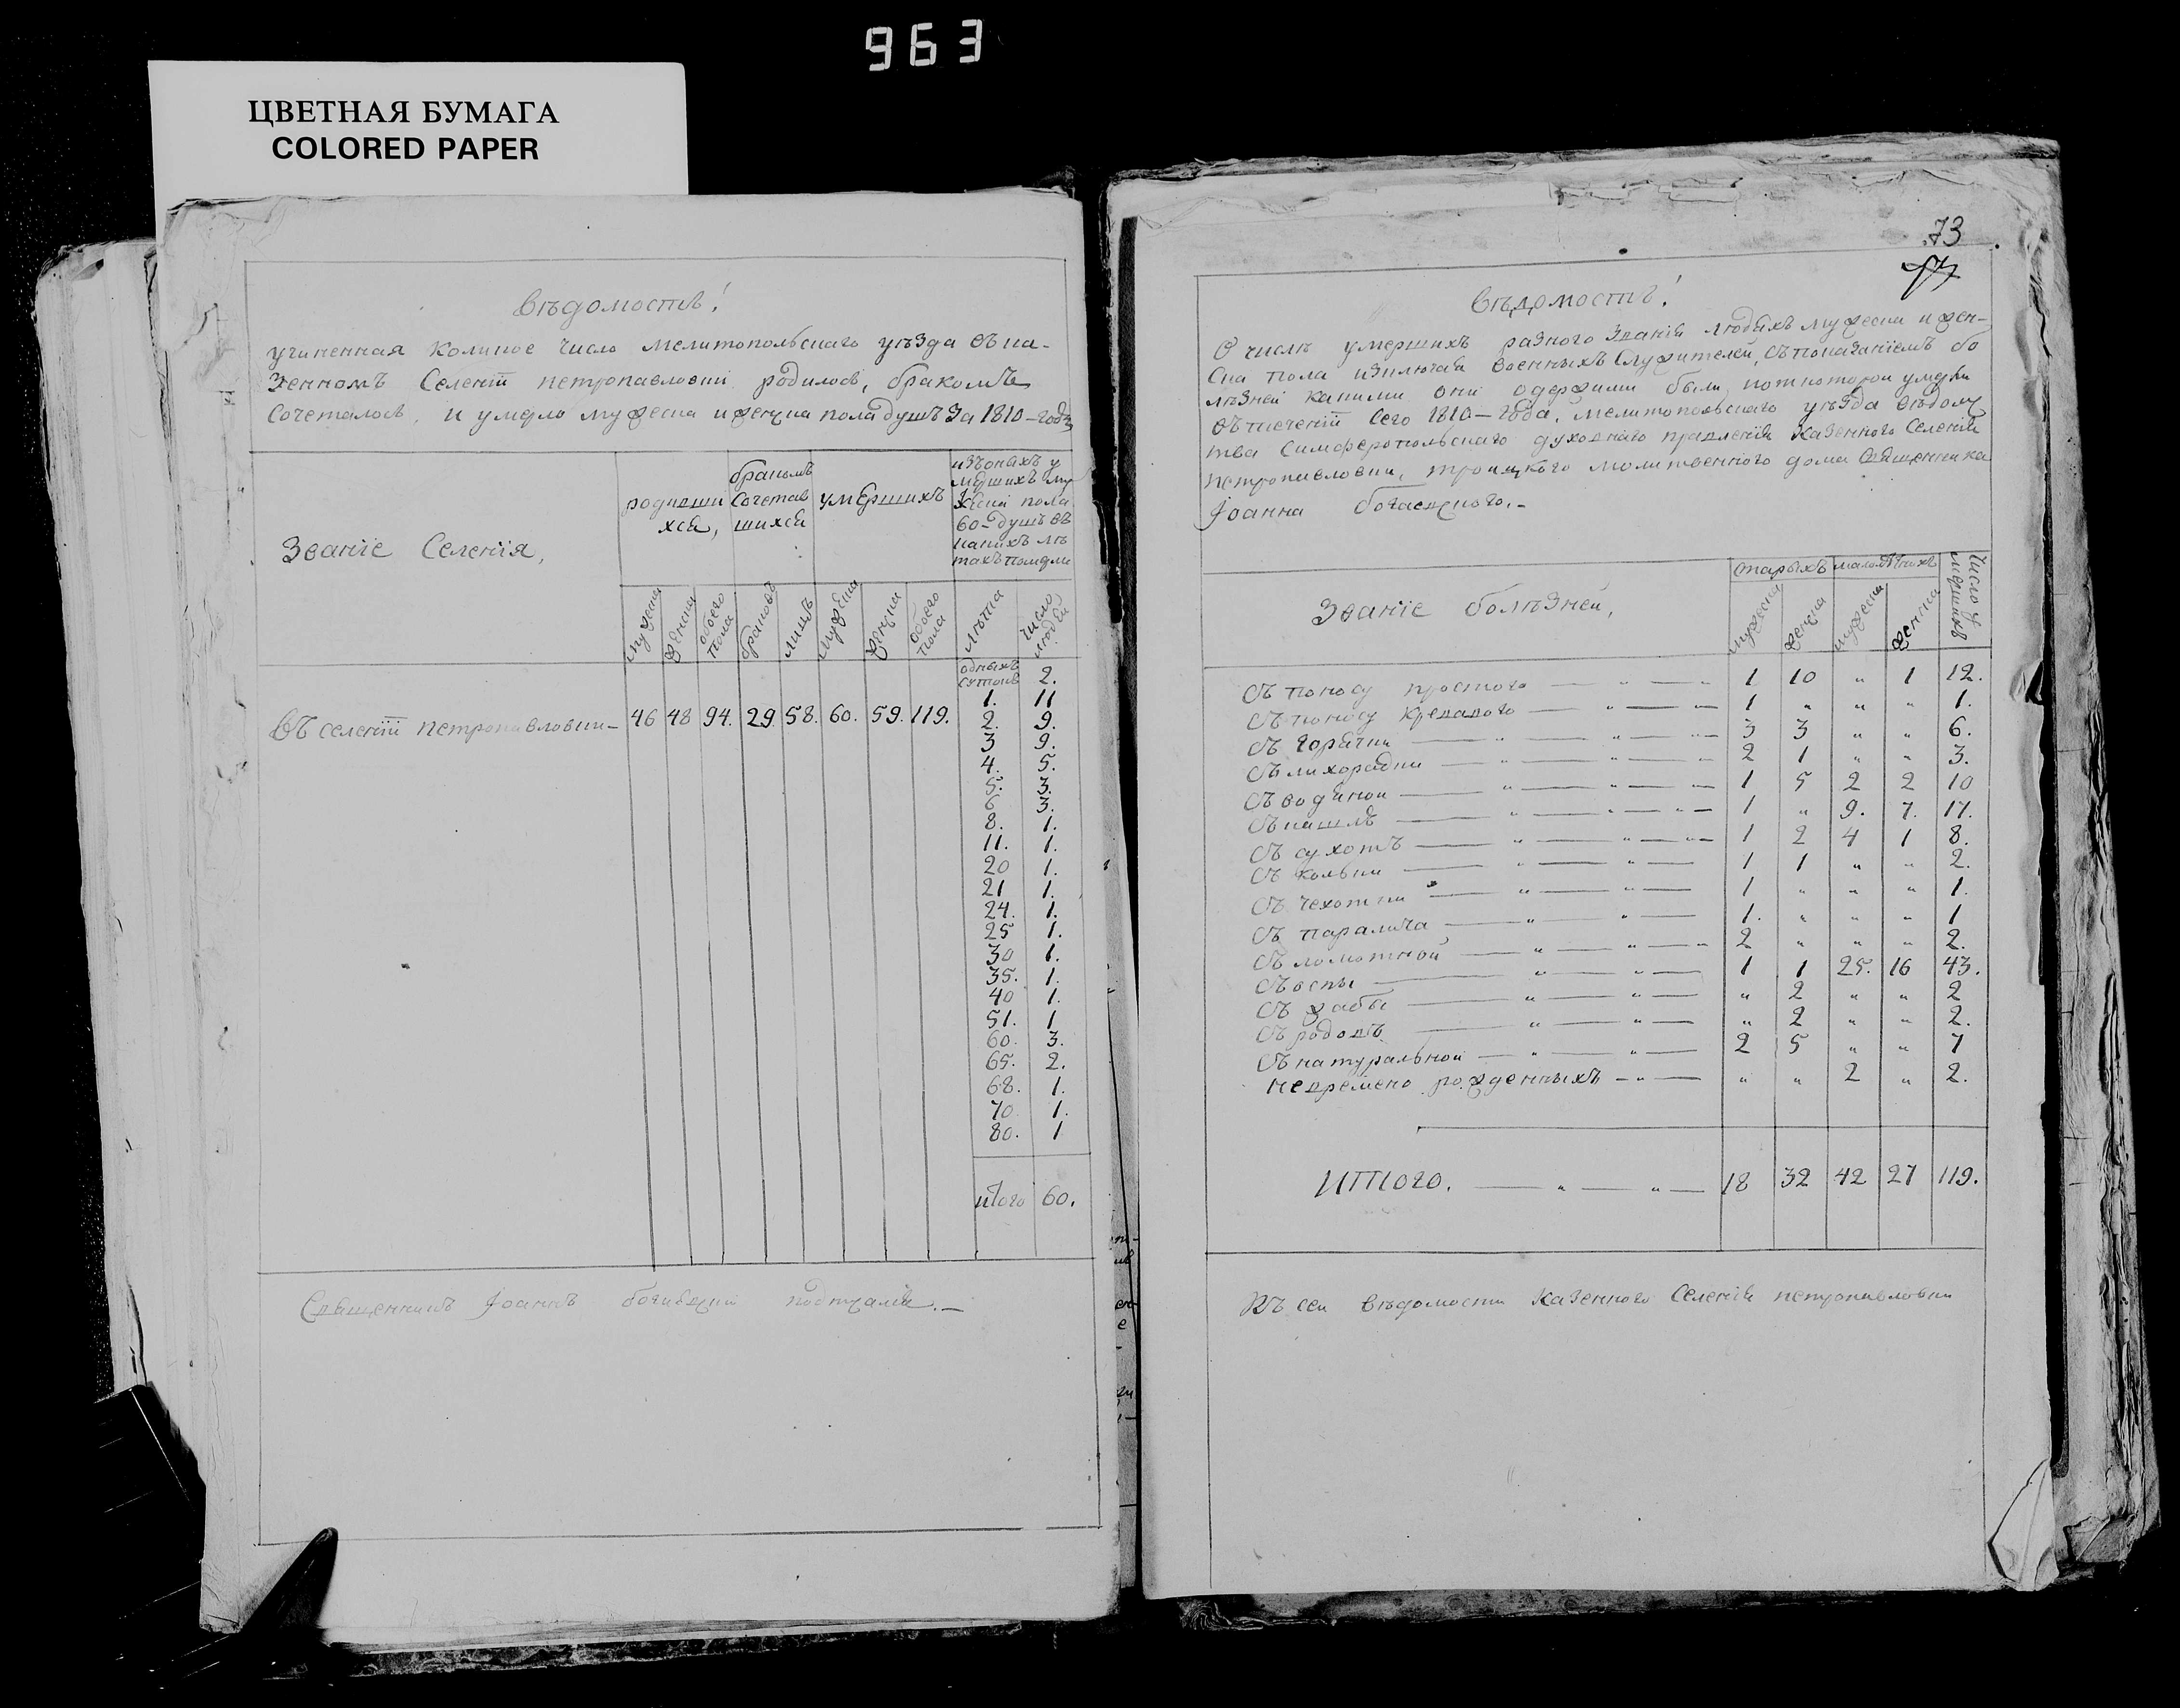 963
ЦВЕТНАЯ БУМАГА
COLORED PAPER
Вѣдомость!
учиненная Коликое число мелитопольскаго уѣзда въ ка-
зенномъ Селенїи петропавловки родилось, бракомъ
сочеталось, и умерло мужеска и женска пола душъ За 1810-годъ
Званїе Селенїя,
родивши
хся,
бракомъ
Сочетав
шихся
умершихъ
изъоныхъ у
мершихъ му
жеска пола
60-душъ въ
какихъ лѣ
тахъ померли
мужеска
женска
обоего пола
браковъ
лицъ
мужеска
женска
обоего пола
лѣта
число людей
Въ селенїи петропавловки- 46 48 94. 29. 58. 60. 59. 119.
однихъ сутокъ 2.
1. 11
2. 9.
3 9.
4. 5.
5. 3.
6 3.
8. 1.
11. 1.
20 1.
21 1.
24. 1.
25 1.
30 1.
35. 1.
40 1.
51. 1
60. 3.
65. 2.
68. 1.
70. 1.
80. 1
итого 60.
Священникъ Іоаннъ подписалъ.-
73
Вѣдомость!
О числѣ умершихъ разного Званїя людяхъ мужеска и жен-
ска пола изключая военныхъ Служителей, съпоказанїемъ бо
лѣзней какими они одержими были, поткоторои умерли
втеченїи сего 1810-года. мелитопольскаго уѣзда вѣдомс
тва Симферопольскаго духовнаго правленїя Казенного Селенїя
петропавловки, троицкого молитвенного дома Священника
Іоанна
Званїе болѣзней,
старыхъ
малолѣтнихъ
Число умершихъ
мужеска
женска
мужеска
женска
Съ поносу простого — „ — „ — 1 10 „ 1 12.
Съ поносу Кровавого — „ — „ — 1 „ „ „ 1.
Съ горячки — „ — „ — „ — 3 3 „ „ 6.
Съ лихорадки — „ — „ — „ 2 1 „ „ 3.
Съ водяной — „ — „ — „ — 1 5 2 2 10
Съ кашлѣ — „ — „ — „ — 1 „ 9. 7. 17.
Съ сухотъ — „ — „ — „ — 1 2 4 1 8.
Съ кольки — „ — „ — 1 1 „ „ 2.
Съ чехотки — „ — „ — 1 „ „ „ 1.
Съ паралича — „ — „ — 1. „ „ „ 1
Съ ломотной — „ — „ — „ 2 „ „ „ 2.
Съ оспы — „ — „ — 1 1 25. 16 43.
Съ жабы — „ — „ — „ 2 „ „ 2
Съ родовъ — „ — „ — „ 2 „ „ 2.
Съ натуральной — „ — „ — 2 5 „ „ 7
невремено рожденныхъ — „ — „ „ 2 „ 2.
ИТТого. — „ — „ — 18 32 42 27 119.
Къ сеи вѣдомости Казенного Селенїя петропавловки